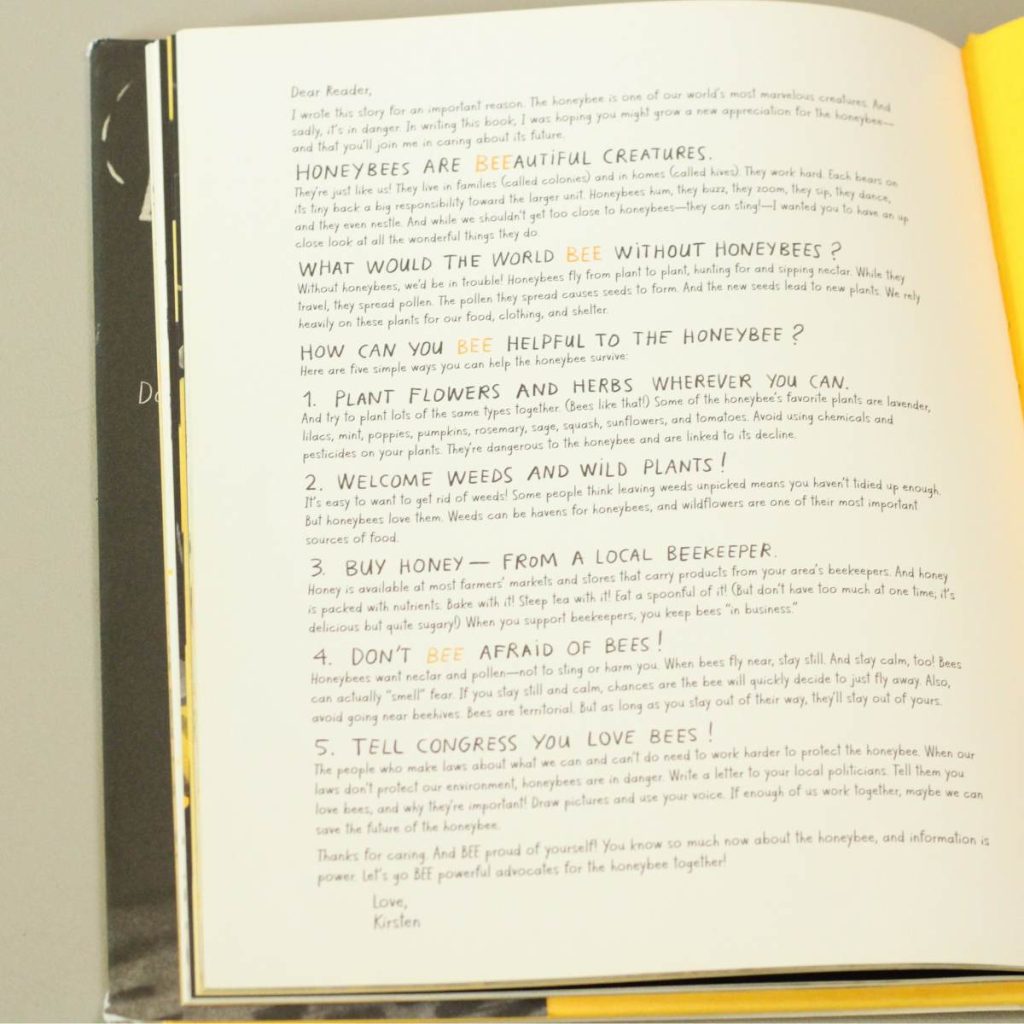 Dear Reader,
I wrote this story for an important reason. The honeybee is one of our world's most marvelous creatures. And
sadly, it's in danger. In writing this book, I was hoping you might grow a new appreciation for the honeybee—
and that you'll join me in caring about its future.
HONEYBEES ARE BEEAUTIFUL CREATURES.
They're just like us! They live in families (called colonies) and in homes (called hives). They work hard. Each bears on
its tiny back a big responsibility toward the larger unit. Honeybees hum, they buzz, they zoom, they sip, they dance,
and they even nestle. And while we shouldn't get too close to honeybees—they can sting!—I wanted you to have an up
close look at all the wonderful things they do.
WHAT WOULD THE WORLD BEE WITHOUT HONEYBEES?
Without honeybees, we'd be in trouble! Honeybees fly from plant to plant, hunting for and sipping nectar. While they
travel, they spread pollen. The pollen they spread causes seeds to form. And the new seeds lead to new plants. We rely
heavily on these plants for our food, clothing, and shelter.
HOW CAN YOU BEE HELPFUL TO THE HONEYBEE?
Here are five simple ways you can help the honeybee survive:
1. PLANT FLOWERS AND HERBS WHEREVER YOU CAN.
And try to plant lots of the same types together. (Bees like that!) Some of the honeybee's favorite plants are lavender,
lilacs, mint, poppies, pumpkins, rosemary, sage, squash, sunflowers, and tomatoes. Avoid using chemicals and
pesticides on your plants. They're dangerous to the honeybee and are linked to its decline.
2. WELCOME WEEDS AND WILD PLANTS!
It's easy to want to get rid of weeds! Some people think leaving weeds unpicked means you haven't tidied up enough.
But honeybees love them. Weeds can be havens for honeybees, and wildflowers are one of their most important
sources of food.
3. BUY HONEY— FROM A LOCAL BEEKEEPER.
Honey is available at most farmers' markets and stores that carry products from your area's beekeepers. And honey
is packed with nutrients. Bake with it! Steep tea with it! Eat a spoonful of it! (But don't have too much at one time; it's
delicious but quite sugary!) When you support beekeepers, you keep bees "in business."
4. DON'T BEE AFRAID OF BEES!
Honeybees want nectar and pollen—not to sting or harm you. When bees fly near, stay still. And stay calm, too! Bees
can actually "smell" fear. If you stay still and calm, chances are the bee will quickly decide to just fly away. Also,
avoid going near beehives. Bees are territorial. But as long as you stay out of their way, they'll stay out of yours.
5. TELL CONGRESS YOU LOVE BEES!
The people who make laws about what we can and can't do need to work harder to protect the honeybee. When our
laws don't protect our environment, honeybees are in danger. Write a letter to your local politicians. Tell them you
love bees, and why they're important! Draw pictures and use your voice. If enough of us work together, maybe we can
save the future of the honeybee.
Thanks for caring. And BEE proud of yourself! You know so much now about the honeybee, and information is
power. Let's go BEE powerful advocates for the honeybee together!
Love,
Kirsten